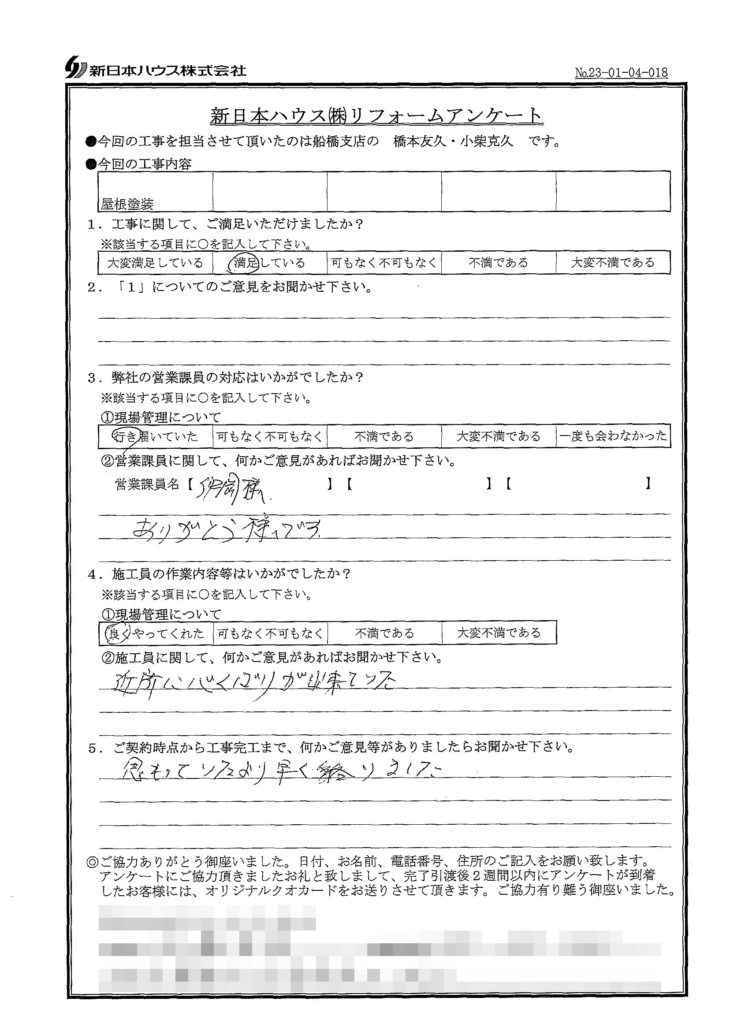 新日本ハウス株式会社
№23-01-04-018
新日本ハウス㈱リフォームアンケート
●今回の工事を担当させて頂いたのは船橋支店の 橋本友久・小柴克久 です。
●今回の工事内容
屋根塗装
1．工事に関して、ご満足いただけましたか？
※該当する項目に○を記入して下さい。
大変満足している 満足している 可もなく不可もなく 不満である 大変不満である
2．「1」についてのご意見をお聞かせ下さい。
3．弊社の営業課員の対応はいかがでしたか？
※該当する項目に○を記入して下さい。
①現場管理について
行き届いていた 可もなく不可もなく 不満である 大変不満である 一度も会わなかった
②営業課員に関して、何かご意見があればお聞かせ下さい。
営業課員名【 様 】【 】【 】
ありがとう様です
4．施工員の作業内容等はいかがでしたか？
※該当する項目に○を記入して下さい。
①現場管理について
良くやってくれた 可もなく不可もなく 不満である 大変不満である
②施工員に関して、何かご意見があればお聞かせ下さい。
近所に心くばりが出来ていた
5．ご契約時点から工事完工まで、何かご意見等がありましたらお聞かせ下さい。
思っていたより早く終りました
◎ご協力ありがとう御座いました。日付、お名前、電話番号、住所のご記入をお願い致します。
アンケートにご協力頂きましたお礼と致しまして、完了引渡後2週間以内にアンケートが到着
したお客様には、オリジナルクオカードをお送りさせて頂きます。ご協力有り難う御座いました。